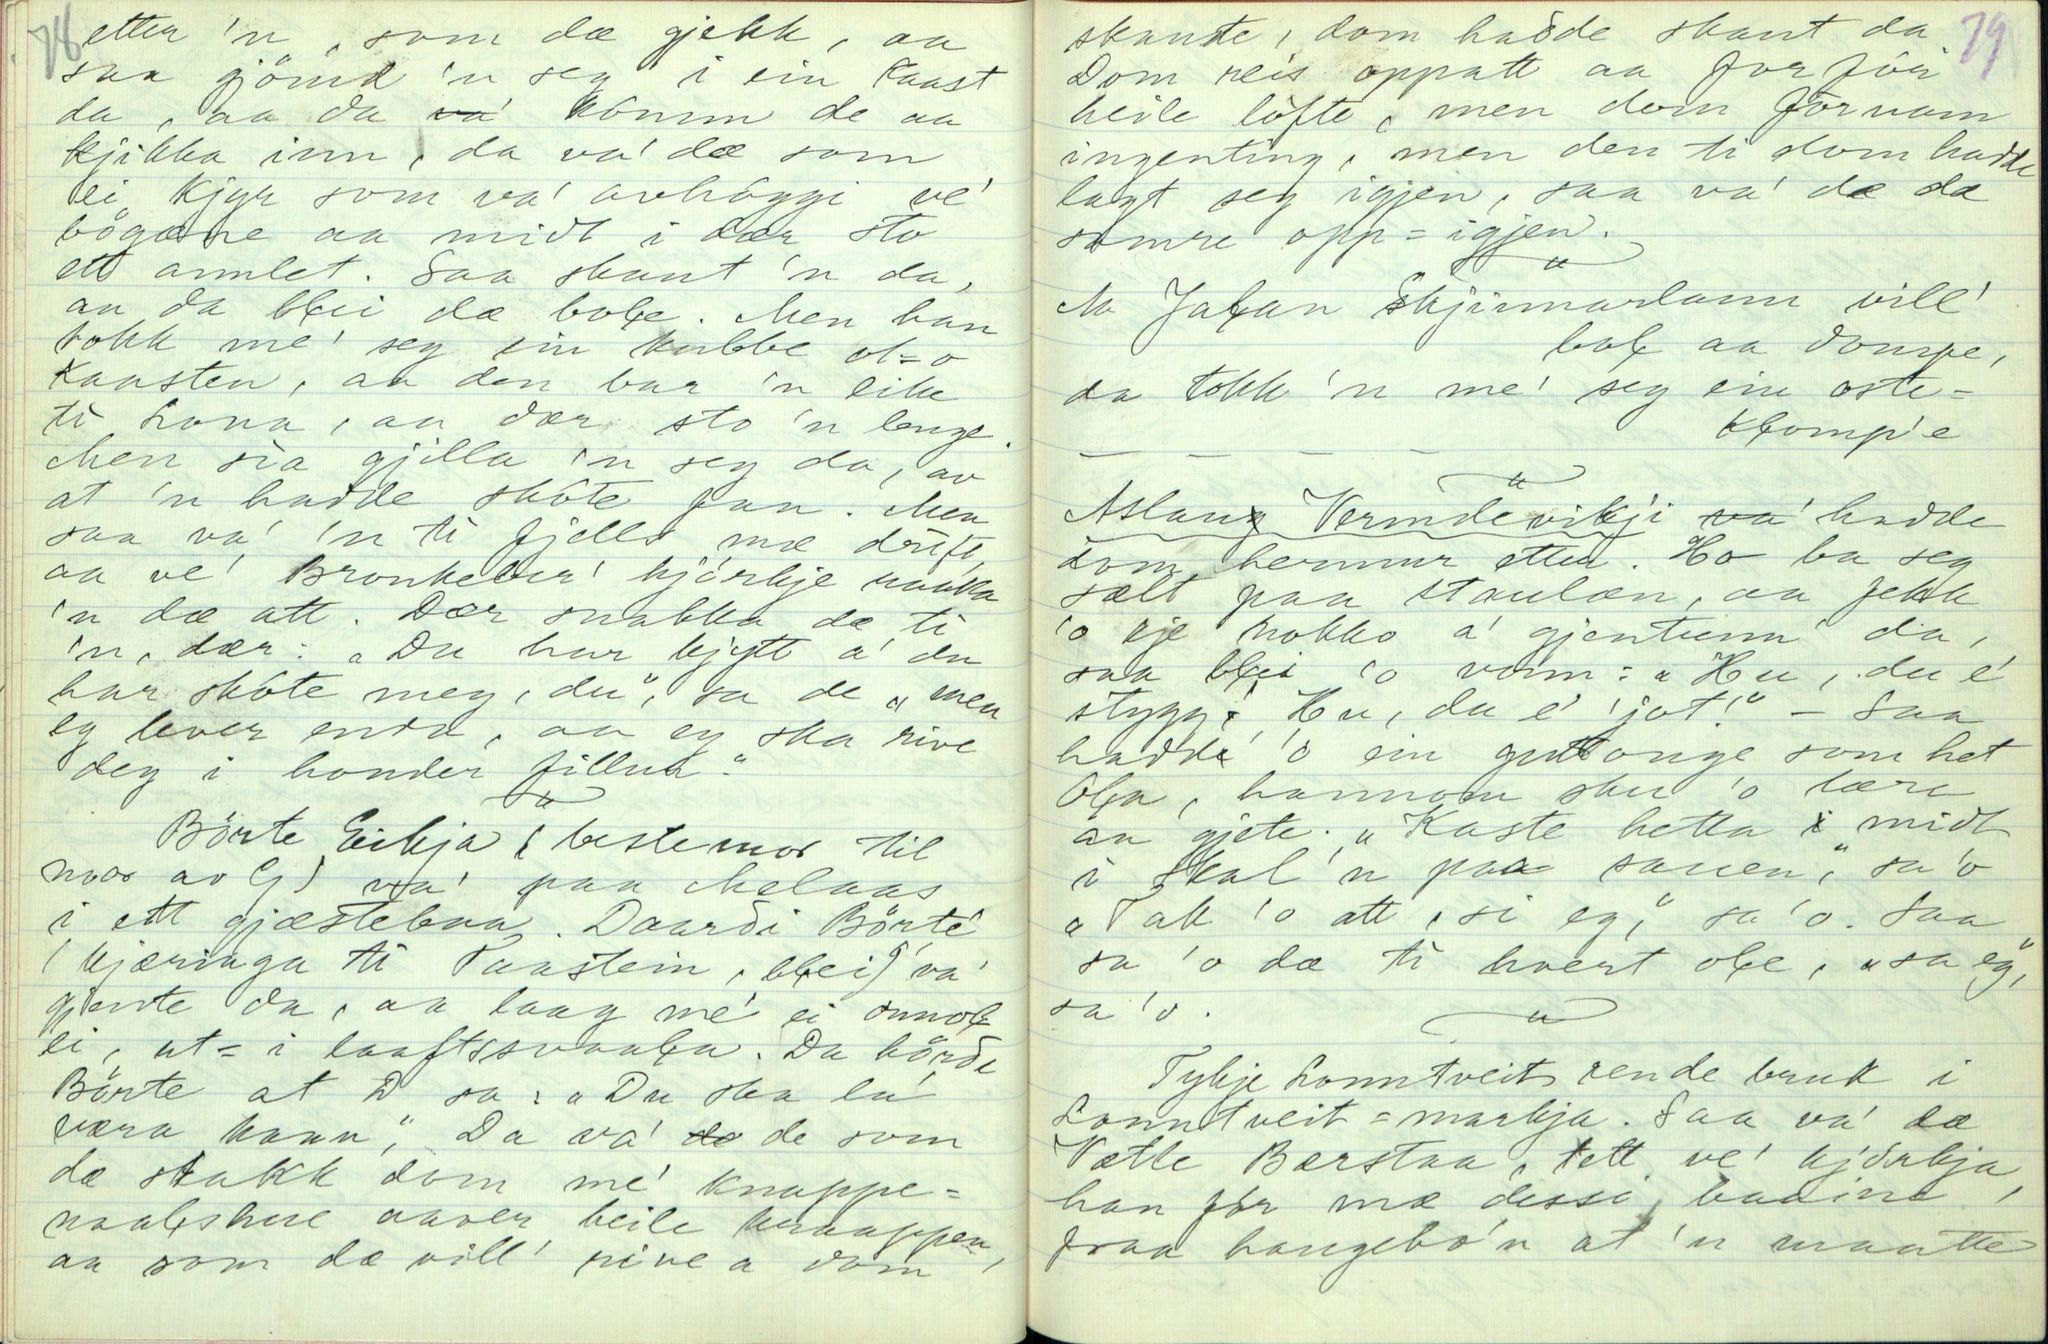 78
etter 'n, som dæ gjekk, aa
saa gjömd 'n seg i ein kaast
da, aa da va' kômm de aa
kjikka inn, da va' dæ som
ei kjyr som va' avhöggi ve'
bögæne aa midt i dær sto
ett annlet. Saa skaut 'n da,
aa da blei dæ bole. Men han
tokk me' seg ein kubbe ot=o
kaasten, aa den bar 'n like
ti Lona, aa dær sto 'n lenge.
Men sia gjilla 'n seg da, av
at 'n hadde skôte fan. Men
saa va' 'n ti fjells mæ drift,
aa ve' Brunkeber' kjörkje raaka
'n dæ att. Dær snakka dæ ti
'n, dær: "Du har kjytt a' du
har skôte meg, du", sa de "men
eg lever enda, aa eg ska rive
deg i honder fillur."
Börte Eikja (bestemor til
mor av G) va' paa Melaas
i ett gjæstebaa. Daardi Börte
(kjæringa ti Taastein, blei) va'
gjente da, aa laag me' ei onnol
ei, ut=i laaftssvaala. Da hörde
Börte at D sa: "Du ska la'
væra kaan", Da va' de som
dæ stakk dom me' knappe=
naalshue aaver heile kraappen,
aa som dæ vill' rive a dom
79
skaute, dom hadde skaut da
Dom reis oppatt aa for fôr
heile lôfte, men dom fôrnam
ingenting, men den ti dom hadde
lagt seg igjen, saa va' dæ dæ
somre opp=igjen.
Aa Jalan Skjinnarlann vill'
bal aa dompe,
da tokk 'n me' seg ein oste=
klomp'e
Aslaug Vermdevikji va' hadde
dom hermur etter. Ho ba seg
sælt paa staulæn, aa fekk
'o sje nokko a' gjentunn da,
saa blei 'o vônn: "Hu, du e'
stygg! Hu, du e' jot!" - Saa
hadde 'o ein gutonge som het
Ola, hannom sku 'o lære
aa gjete. "Kaste hetta i midt
i skal'n paa sauen," sa 'o
"Tak 'o att, si eg," sa 'o. Saa
sa 'o dæ ti hvert ole, "sa eg",
sa 'o.
Tykje Lonntveit rende bruk i
Lonntveit=markja. Saa va' dæ
Vetle Bærstaa, tett ve' kjörkja,
han fôr mæ dessi baaine,
fraa haugebô'n at 'n maatte